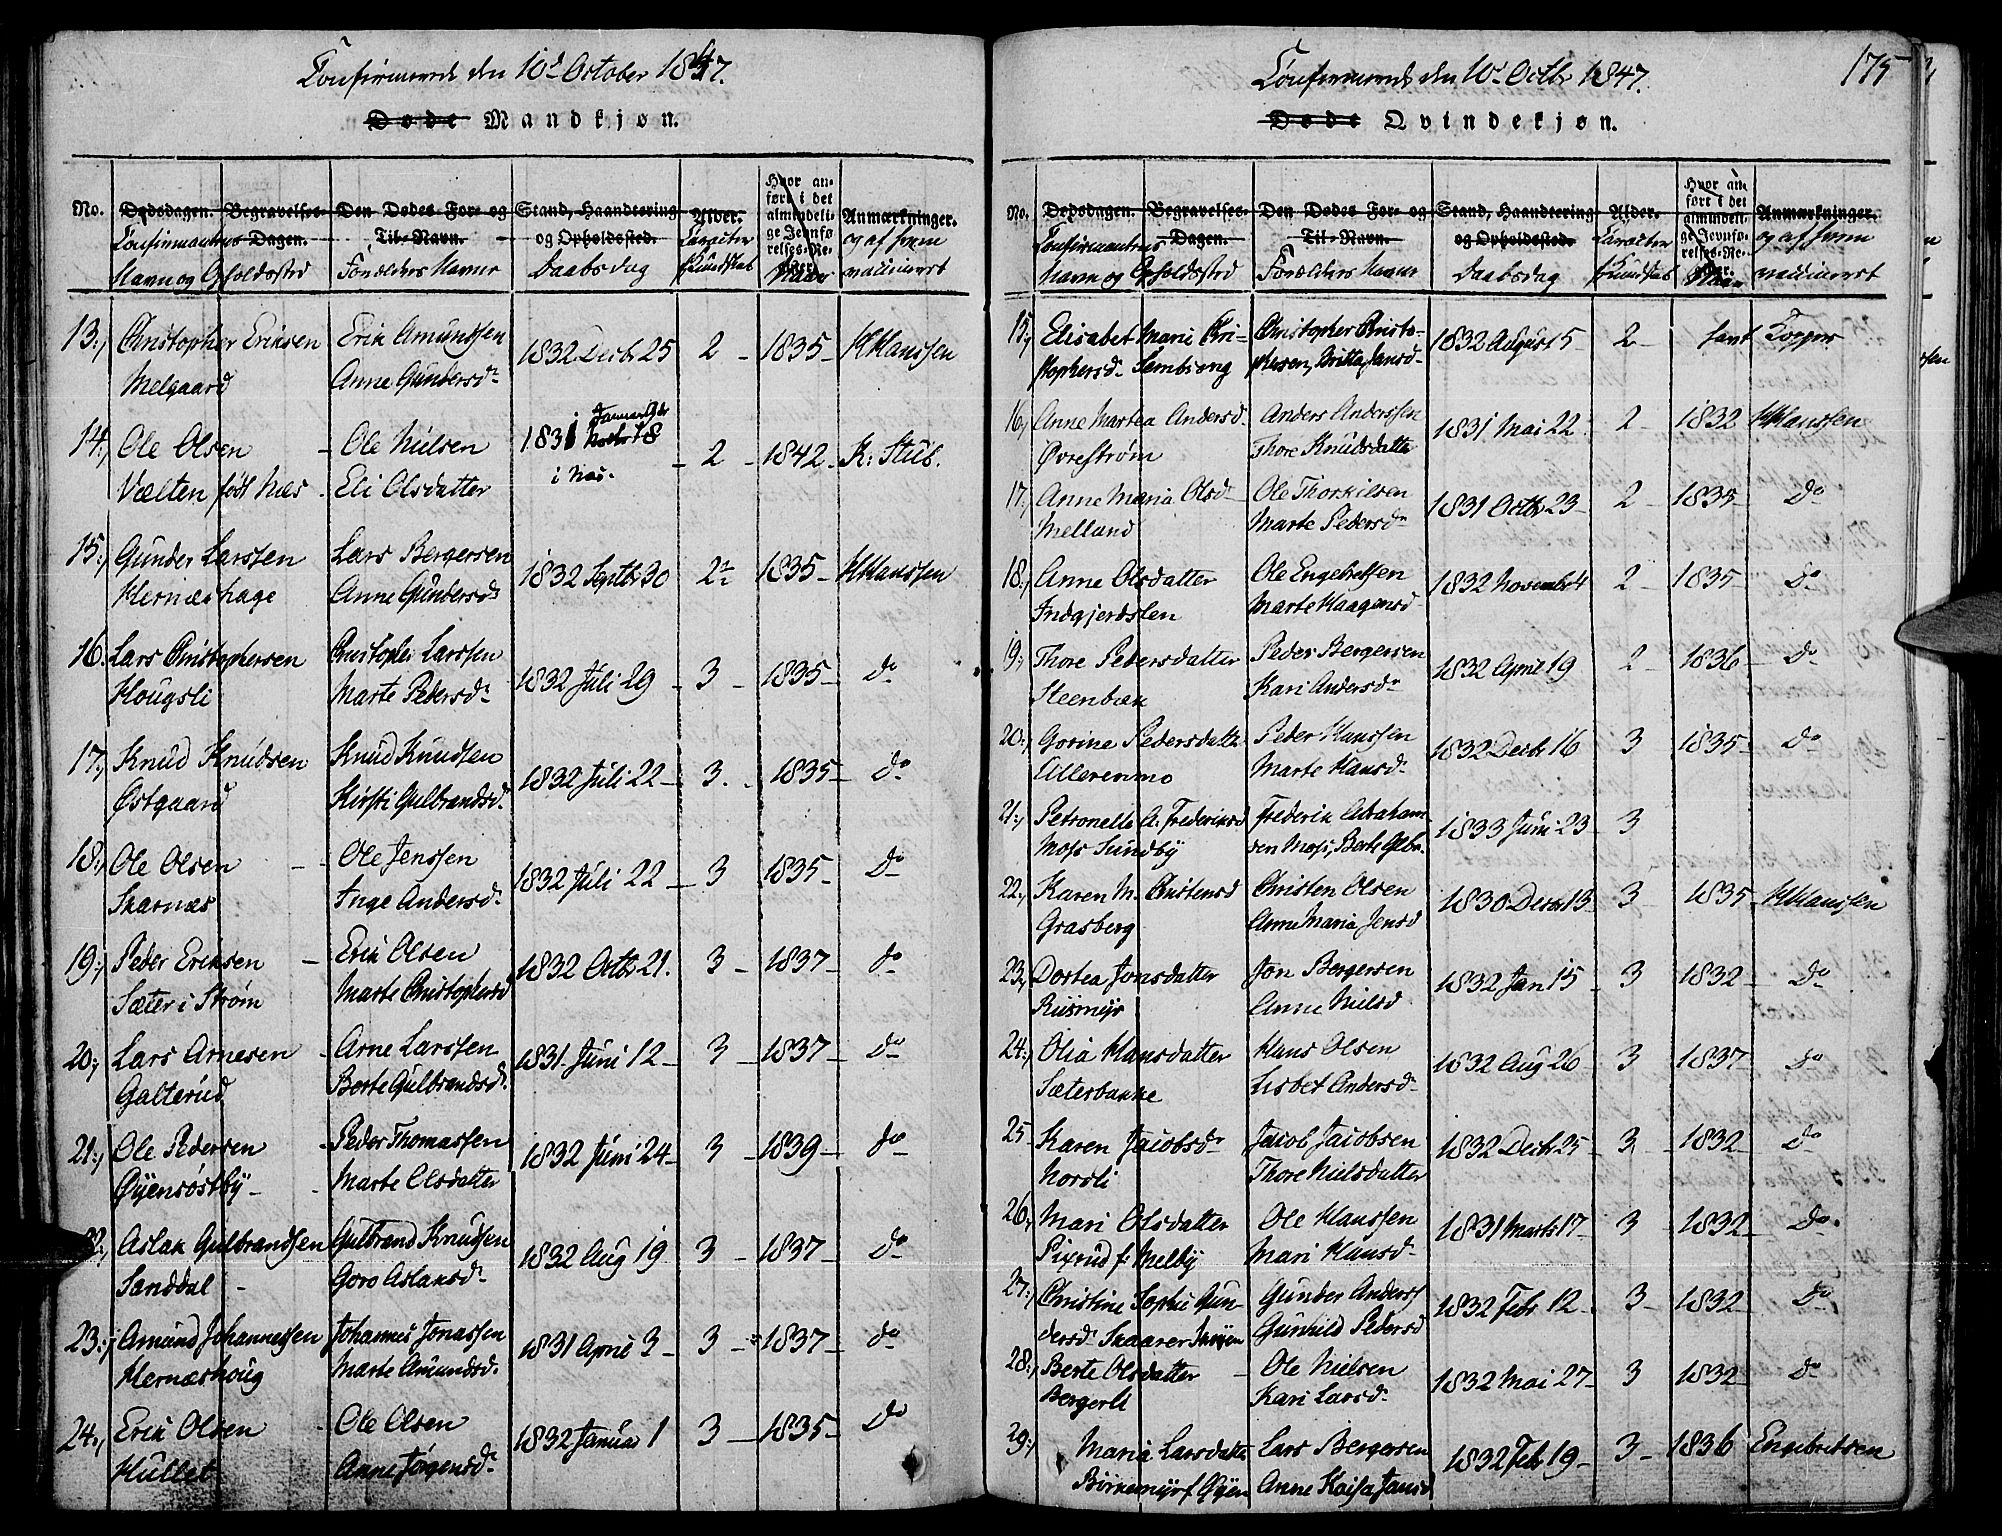 Confirmerede den 10d October 1847.
Døde Mandkjøn.
No.
Dødsdagen.
Begravelses-Dagen.
Den Dødes For- og Til-Navn.
Stand, Haandtering og Opholdssted.
Alder.
Hvor anført i det almindelige Jevnførelses-Register.
Anmærkninger.
Confirmantens Navn og Opholdssted
Forældres Navne
Daabsdag
Caracter Kundskab
og af hvem vaccineret
13, Christopher Eriksen Erik Amundsen 1832 Decbr 25 2 - 1835 - H Hanssen
Melgaard Anne Gundersdr
14, Ole Olsen - Ole Nielsen 1831 Januar 18 - 2 - 1842 - K: Stub.
Vælten født Næs - Eli Olsdatter i Næs.
15, Gunder Larssen Lars Bergersen 1832 Septbr 30 2 1835 - H Hanssen
Hernæshage Anne Gundersdr
16. Lars Christophersen Christopher Larssen 1832 Juli 29 - 3 - 1835 - do
Hougsli Marte Pedersdr
17, Knud Knudsen Knud Knudsen 1832 Juli 22 - 3. - 1835 - do
Østgaard Kirsti Gulbrandsdr
18, Ole Olsen - Ole Jenssen 1832 Juli 22 - 3 1835 - do
Skarnæs Inge Andersdr
19, Peder Eriksen - Erik Olsen 1832 Octbr 21. 3 - 1837 - do
Sæter i Strøm Marte Christophersd
20, Lars Arnesen - Arne Larssen 1831 Juni 12 - 3 - 1837 - do
Galterud Berte Gulbrandsdr
21, Ole Pedersen - Peder Thomassen 1832 Juni 24 - 3 - 1839 - do
Øyensøstby - Marte Olsdatter
22, Aslak Gulbrandsen Gulbrand Knudsen 1832 Aug 19 3 - 1837 - do
Sanddal - Goro Aslaksdr
23, Amund Johannessen Johannes Jonassen 1831 April 3 - 3 - 1837 - do
Hernæshoug Marte Amundsdr
24, Erik Olsen - Ole Olsen 1832 Januar 1 3 - 1835 - do
Hullet Anne Jørgensdr
175
Confirmerede den 10d Octbr 1847.
Døde Qvindekjøn.
No.
Dødsdagen.
Begravelses-Dagen.
Den Dødes For- og Til-Navn.
Stand, Haandtering og Opholdssted.
Alder.
Hvor anført i det almindelige Jevnførelses-Register.
Anmærkninger.
Confirmantens Navn og Opholdssted
Forældres Navne
Daabsdag
Caracter Kundskab
og af hvem vaccineret
15, Elisabet Marie Chri- Christopher Christo- 1832 August 5 - 2 -
stophersd. Sembiong phersen, Britta Jansd.
16, Anne Martea Andersd. Anders Anderssen 1831 Mai 22. 2 - 1832 H Hanssen
Øvrestrøm Thore Knudsdatter
17, Anne Maria Olsd Ole Thorkilsen 1831 Octbr 23 - 2 - 1835 - do
Melland Marte Pedersdr
18, Anne Olsdatter Ole Engebretsen 1832 Novembr 4 2 - 1835 - do
Indgjerdslen Marte Haagensd
19, Thore Pedersdatter Peder Bergersen 1832 April 19 2 1836 - do
Steenbæk Kari Andersdr
20, Gorine Pedersdatter Peder Hanssen 1832 Decbr 16 3 1835 - do
Ullerenmo Marte Hansdr
21, Petronelle A. Frederiksd Frederik Abraham- 1833 Juni 23 - 3
Moss Sundby sen Moss, Berte Gulbr.
22, Karen M. Christensd Christen Olsen 1830 Decbr 13 3 1835 - H Hanssen
Grasberg Anne Maria Jensd
23, Dortea Jonsdatter Jon Bergersen 1832 Jan 15 - 3 1832 - do
Riismyr Anne Nielsd
24, Olia Hansdatter Hans Olsen 1832 Aug 26 - 3 1837 - do
Sætersbakke Lisbet Andersdr
25 - Karen Jacobsdr Jacob Jacobsen 1832 Decbr 25 - 3 - 1832 - do
Norsli Thore Nielsdatter
26, Mari Olsdatter Ole Hanssen 1831 Marts 17 - 3 1832 - do
Pixrud f Melby Mari Hansdr
27, Christine Sophie Gun- Gunder Anderss 1832 Febr 12 - 3 - 1832 - do
dersdr Skaarer Gunhild Pedersd
28, Berte Olsdatter - Ole Nielsen 1832 Mai 27 - 3 1832 - do
Bergerli Kari Larsdr
29, Maria Larsdatter Lars Bergersen 1832 Febr 19 - 3 - 1836 Engebretsen
Børkemyr f Øyen Anne Kaisa Jansd